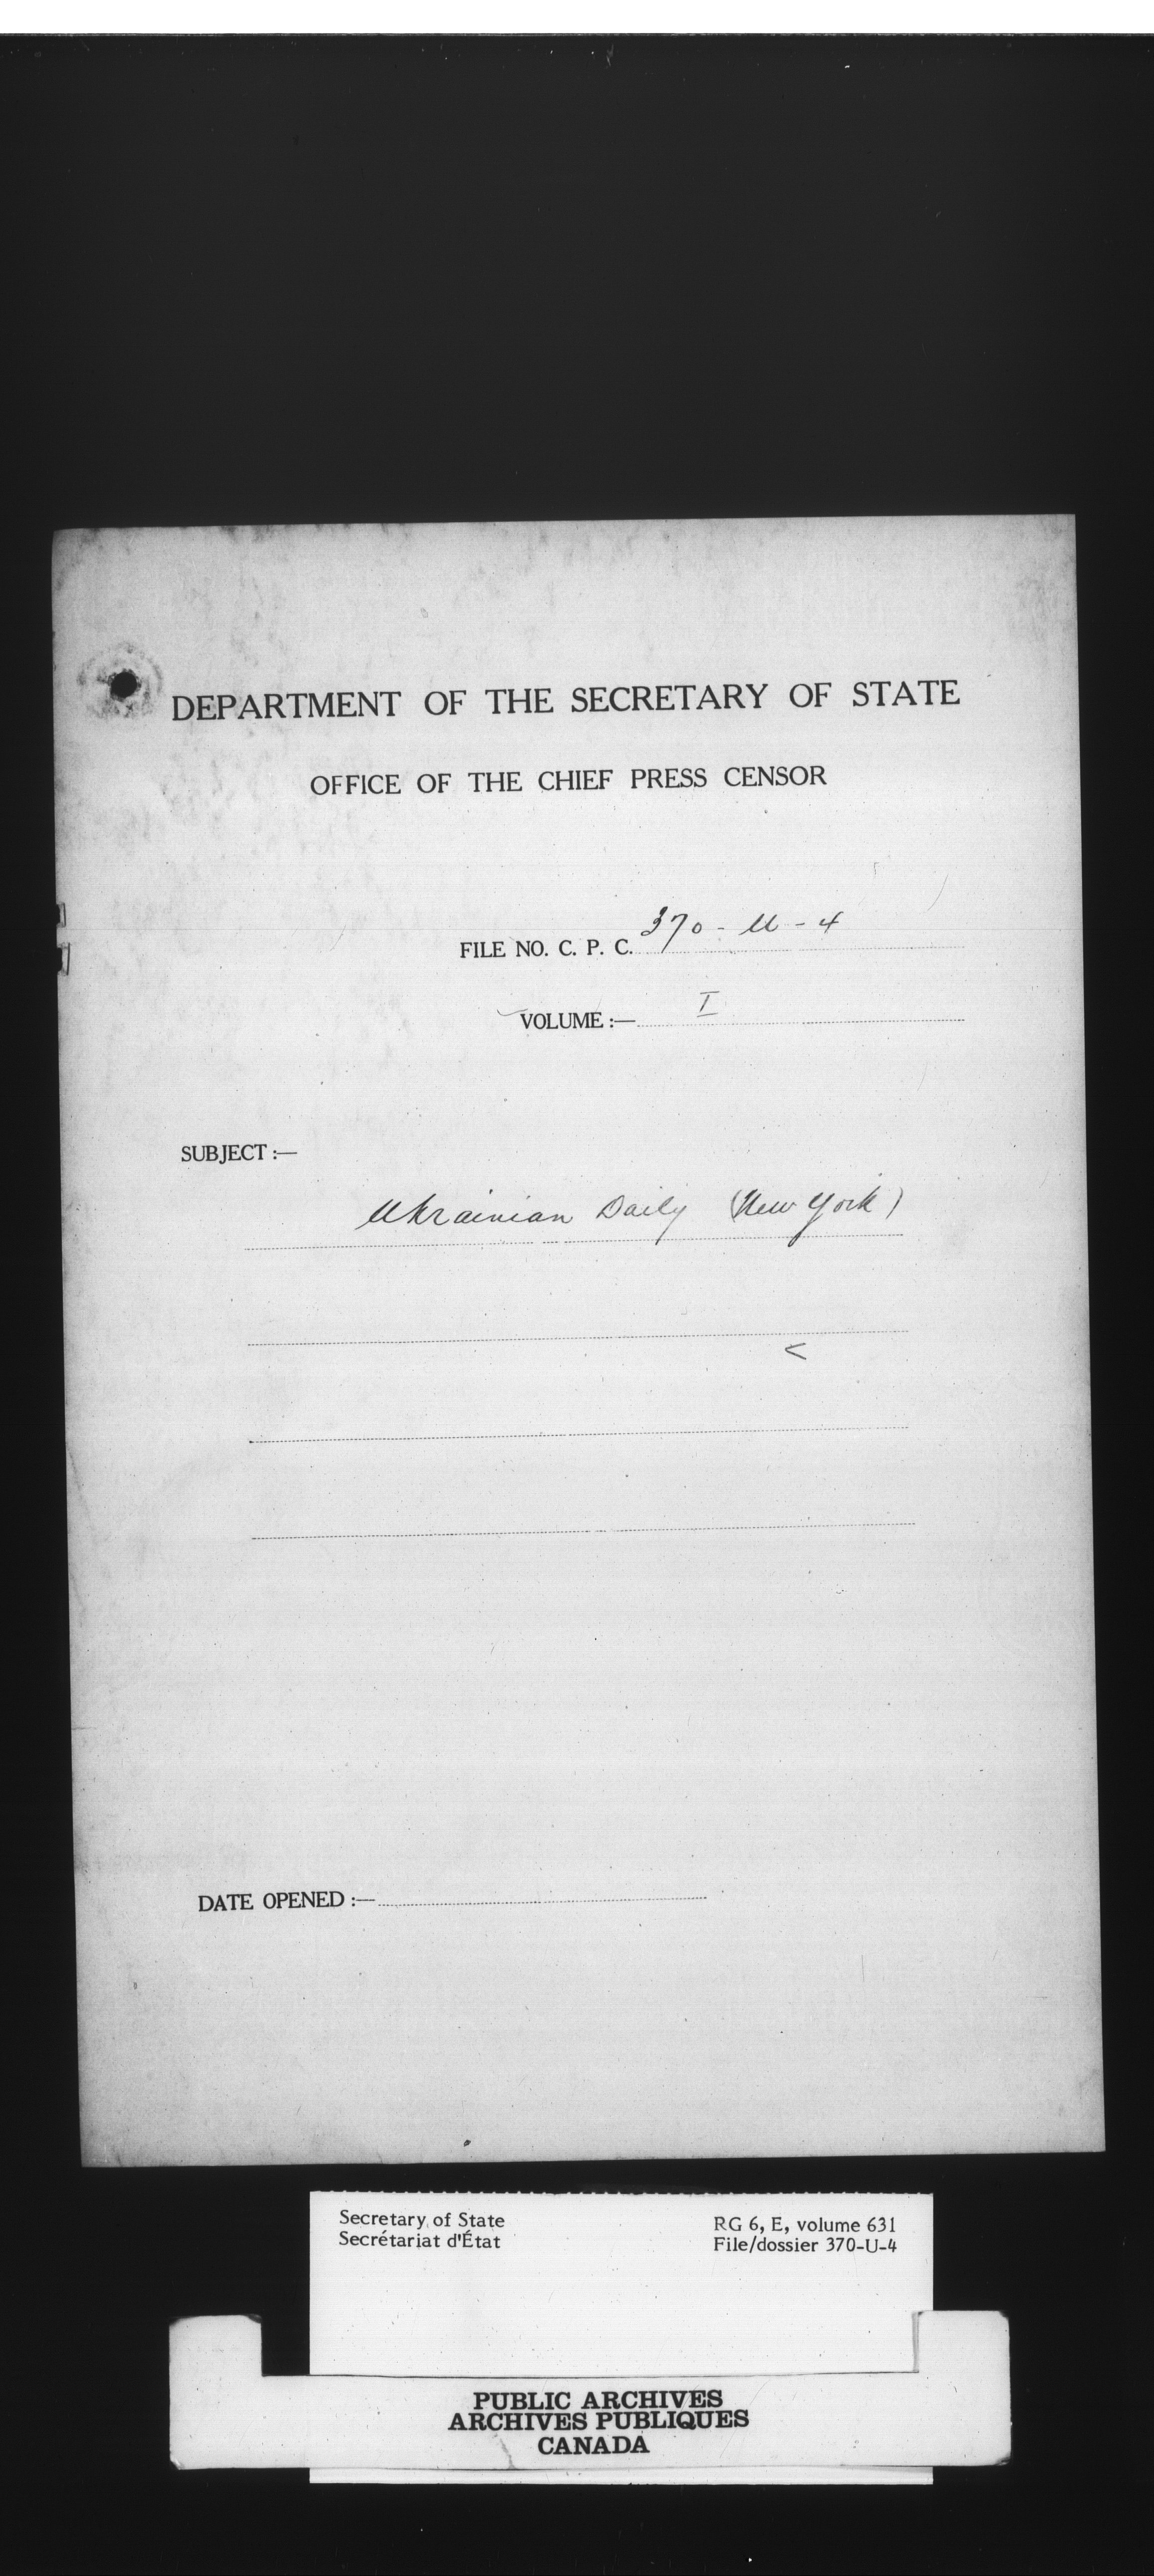 DEPARTMENT OF THE SECRETARY OF STATE
OFFICE OF THE CHIEF PRESS CENSOR
FILE NO. C. P. C. 370 - U - 4
VOLUME :— I
SUBJECT :—
Ukrainian Daily (New York)
DATE OPENED :—
Secretary of State
Secrétariat d'État
RG 6, E, volume 631
File/dossier 370-U-4
PUBLIC ARCHIVES
ARCHIVES PUBLIQUES
CANADA